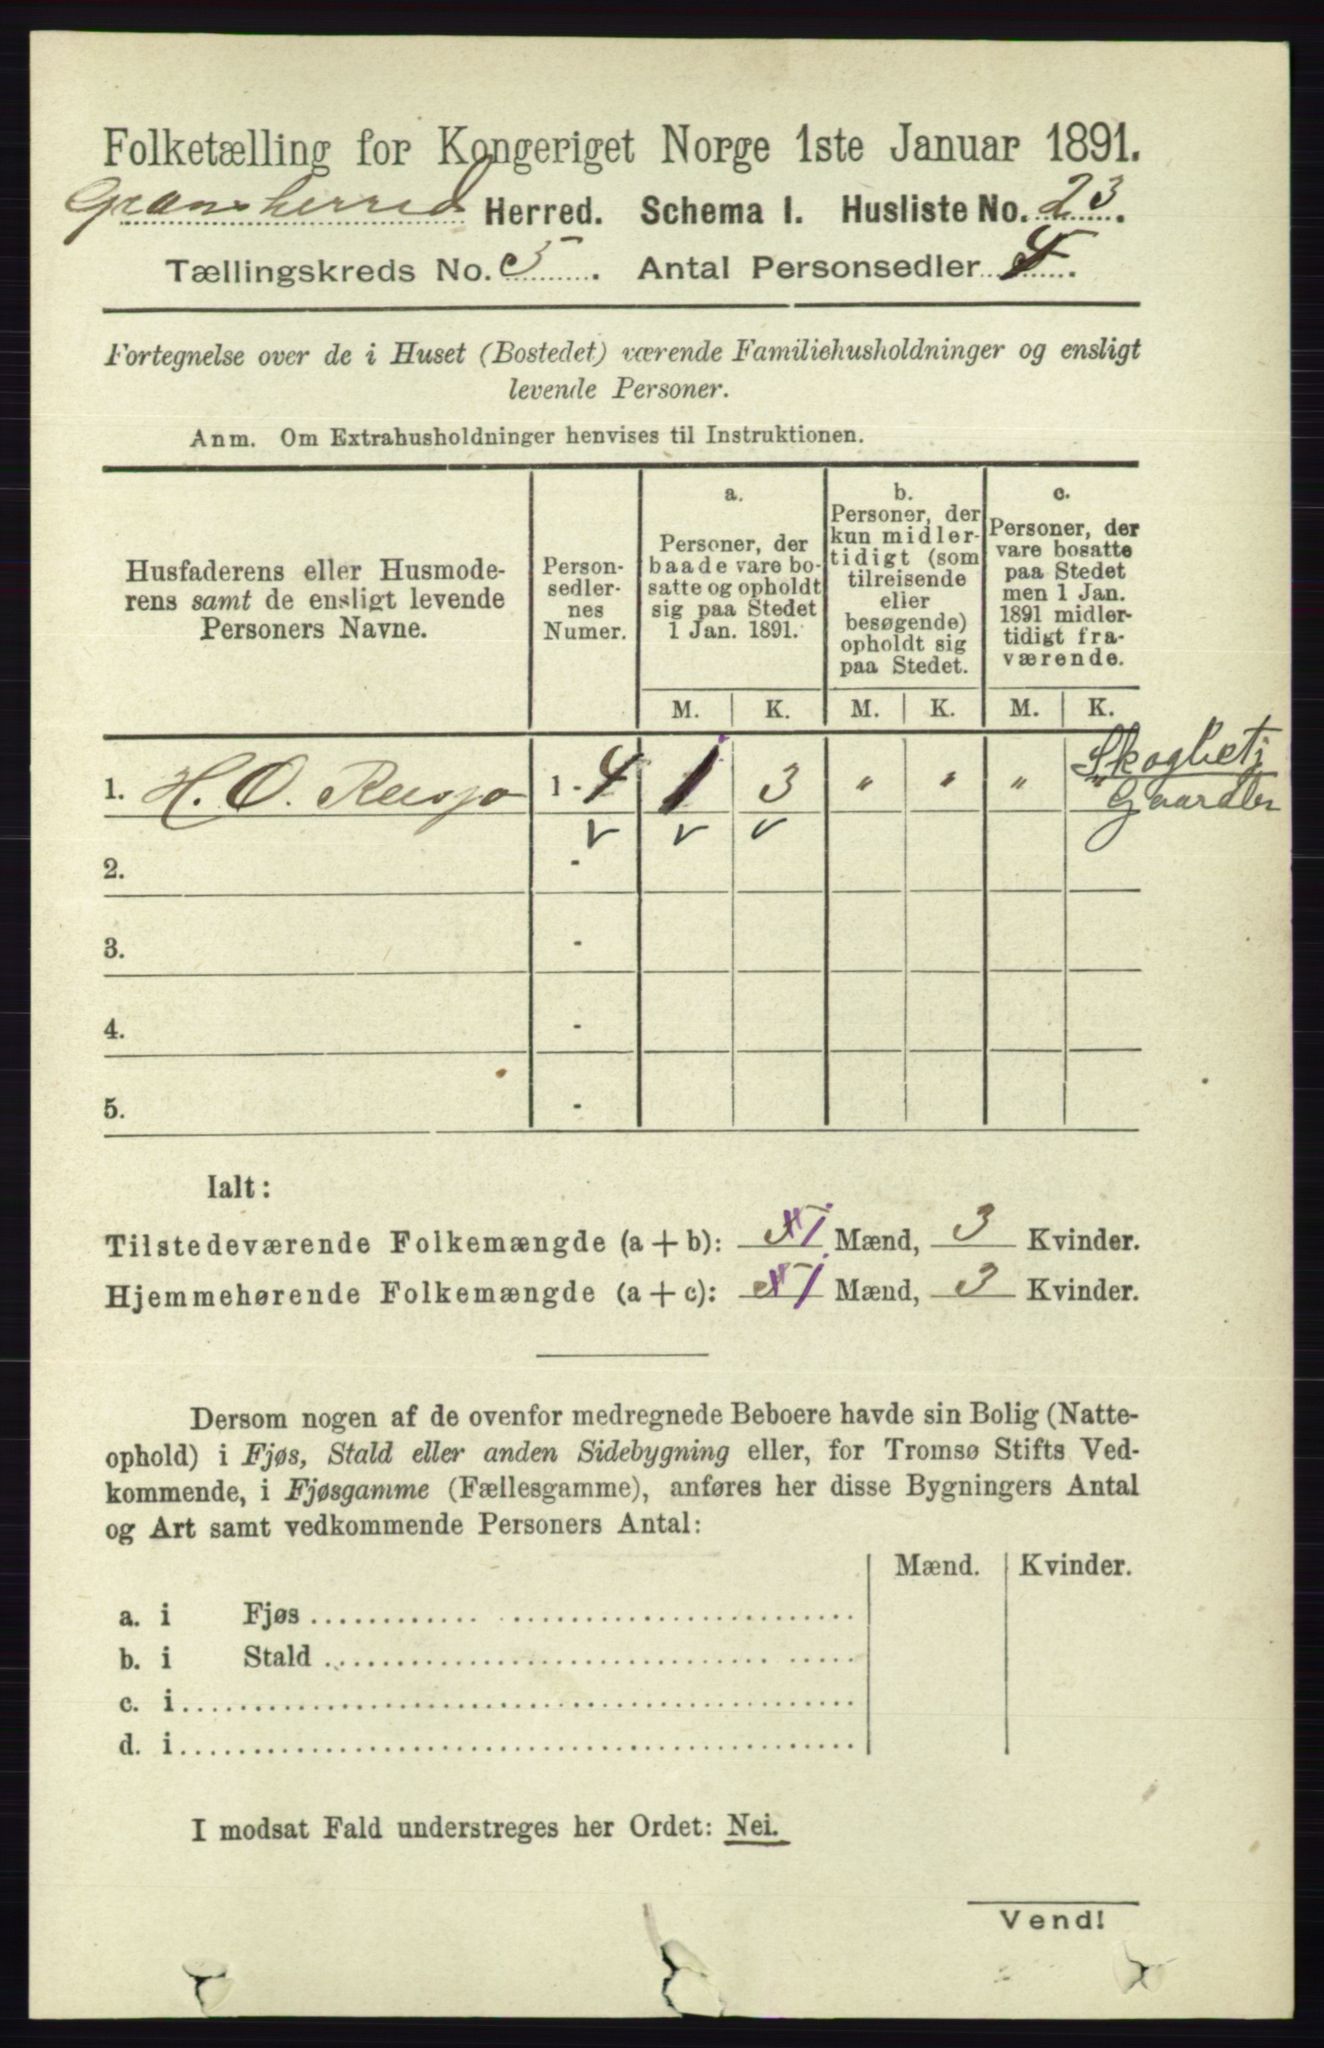 Folketælling for Kongeriget Norge 1ste Januar 1891.
Gransherred Herred. Schema I. Husliste No. 23.
Tællingskreds No. 5. Antal Personsedler 4.
Fortegnelse over de i Huset (Bostedet) værende Familiehusholdninger og ensligt
levende Personer.
Anm. Om Extrahusholdninger henvises til Instruktionen.
Husfaderens eller Husmode-
rens samt de ensligt levende
Personers Navne.
Person-
sedler-
nes
Numer.
a.
Personer, der
baade vare bo-
satte og opholdt
sig paa Stedet
1 Jan. 1891.
b.
Personer, der
kun midler-
tidigt (som
tilreisende
eller
besøgende)
opholdt sig
paa Stedet.
c.
Personer, der
vare bosatte
paa Stedet
men 1 Jan.
1891 midler-
tidigt fra-
værende.
M. K. M. K. M. K.
1. H. O. 1 - 4 1 3 " " " "
Skogbetj
Gaardbr
2. -
3. -
4. -
5. -
Ialt:
Tilstedeværende Folkemængde (a + b): 1 Mænd, 3 Kvinder.
Hjemmehørende Folkemængde (a + c): 1 Mænd, 3 Kvinder.
Dersom nogen af de ovenfor medregnede Beboere havde sin Bolig (Natte-
ophold) i Fjøs, Stald eller anden Sidebygning eller, for Tromsø Stifts Ved-
kommende, i Fjøsgamme (Fællesgamme), anføres her disse Bygningers Antal
og Art samt vedkommende Personers Antal:
Mænd. Kvinder.
a. i Fjøs
b. i Stald
c. i
d. i
I modsat Fald understreges her Ordet: Nei.
Vend!